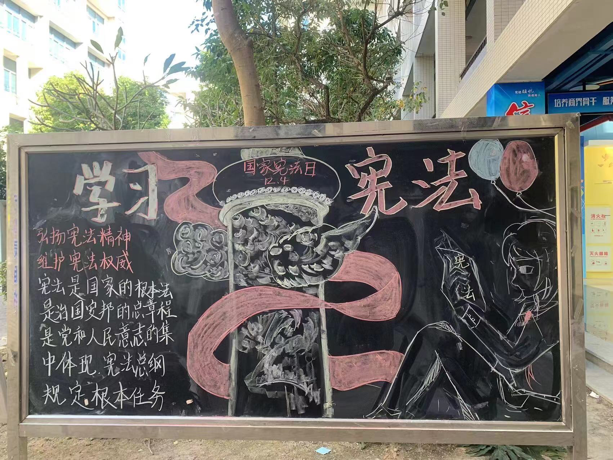 学习
国家宪法日
12.4
宪法
弘扬宪法精神
维护宪法权威
宪法是国家的根本法
是治国安邦的总章程
是党和人民意志的集
中体现.宪法总纲
规定根本任务
宪法
信